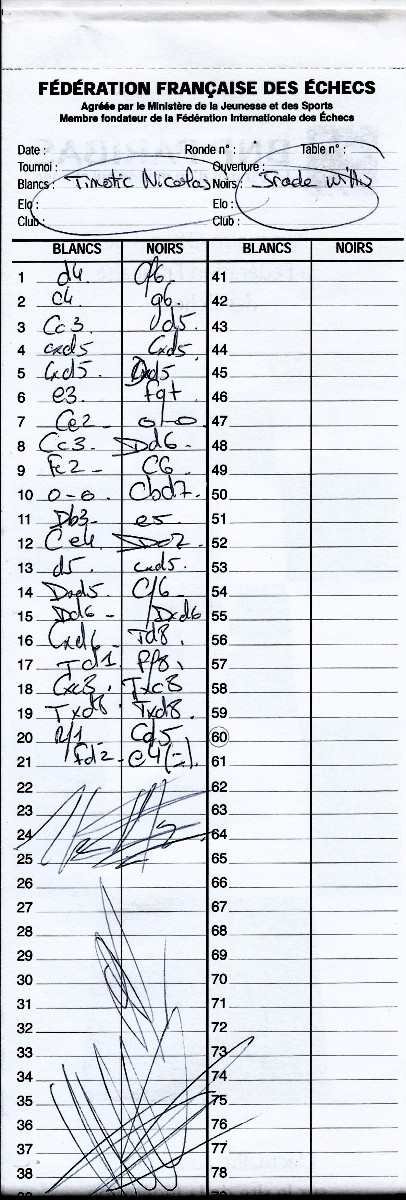 FÉDÉRATION FRANÇAISE DES ÉCHECS
Agréée par le Ministère de la Jeunesse et des Sports
Membre fondateur de la Fédération Internationale des Échecs
Date : Ronde n° : Table n° :
Tournoi : Ouverture :
Blancs : Timotic Nicolas Noirs : Irade Willy
Elo : Elo :
Club : Club :
BLANCS NOIRS BLANCS NOIRS
1 d4 Cf6 41
2 c4 g6. 42
3 Cc3. d5. 43
4 cxd5 Cxd5. 44
5 Cxd5. Dxd5 45
6 e3. Fg7 46
7 Ce2 - 0-0 47
8 Cc3. Dd6. 48
9 Fe2 - C6 49
10 0-0 Cbd7. 50
11 Db3- e5. 51
12 Ce4 De7 52
13 d5. cxd5. 53
14 Dxd5 Cf6 - 54
15 Dd6 - Dxd6 55
16 Cxd6 - Td8. 56
17 Td1 Ff8. 57
18 Cxc8. Txc8 58
19 Txd8. Txd8. 59
20 Rf1 Cd5 60
21 Fd2 - e4 (=). 61
22 62
23 63
24 64
25 65
26 66
27 67
28 68
29 69
30 70
31 71
32 72
33 73
34 74
35 75
36 76
37 77
38 78